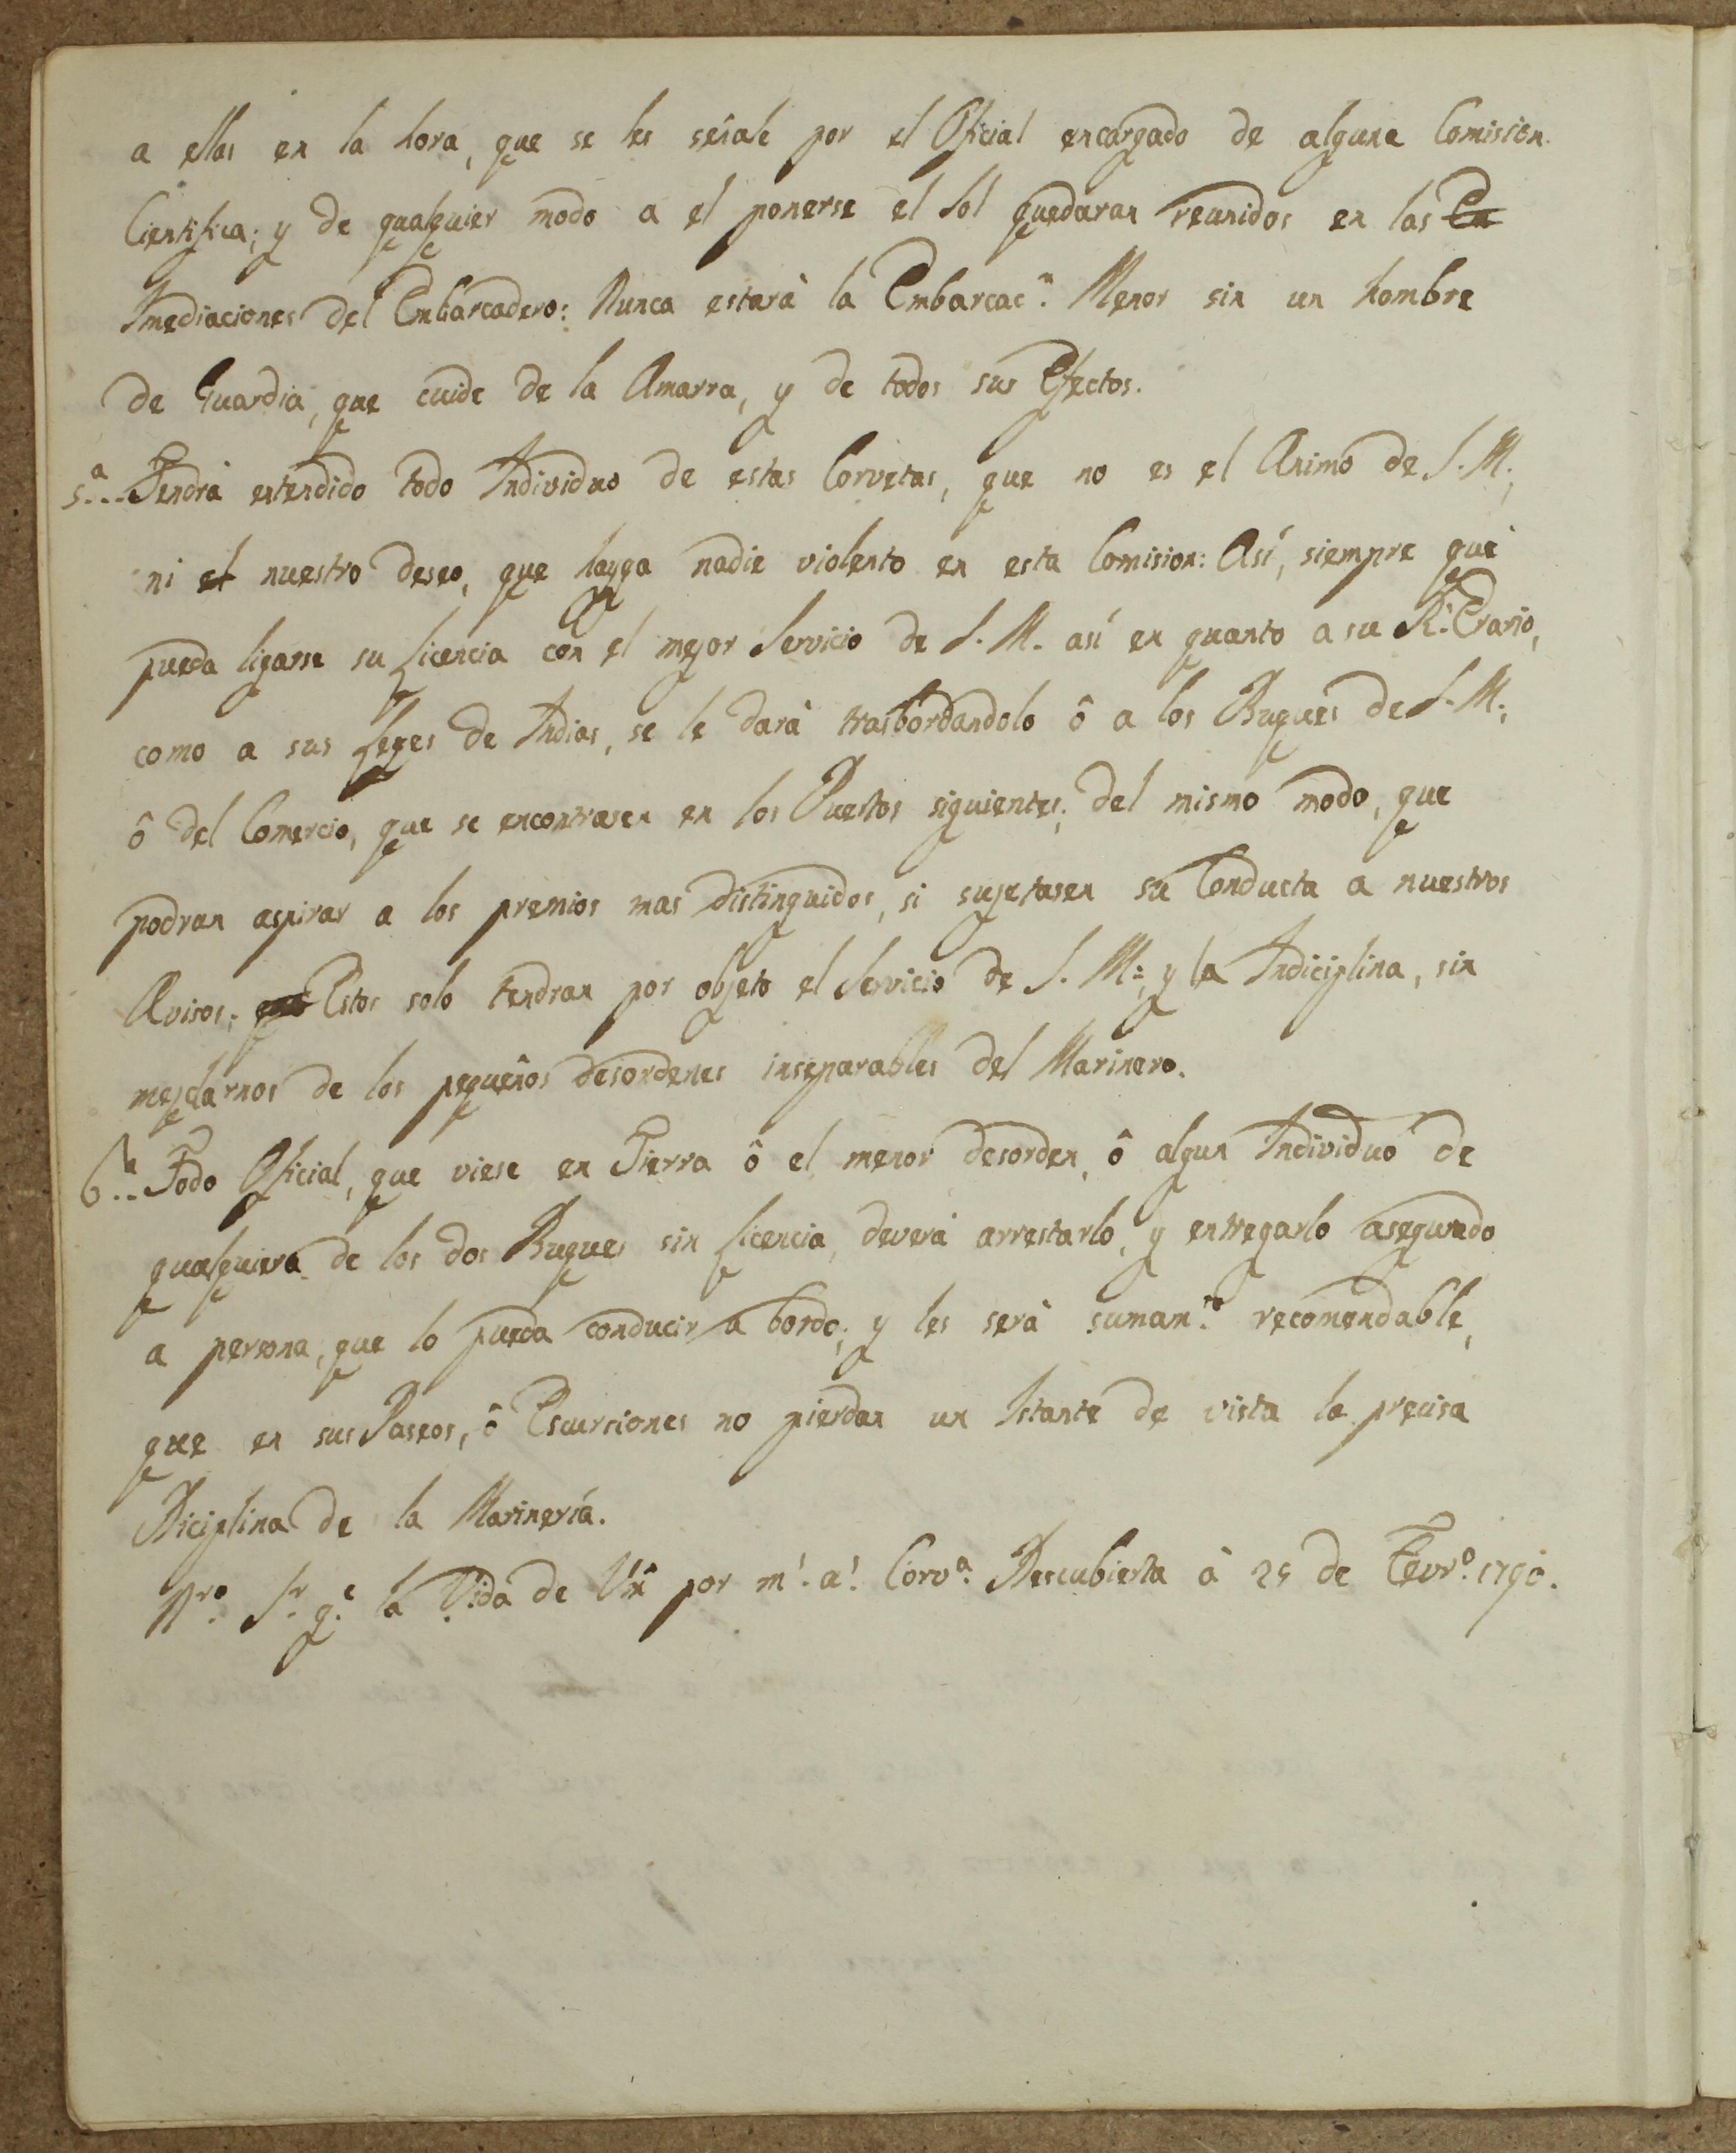 a ellas en la hora, que se les señale por el Oficial encargado de alguna Comision
Cientifica; y de qualquier modo a el ponerse el Sol quedaran reunidos en las En
Imediaciones del Embarcadero: Nunca estarà la Embarcac.n Menor sin un hombre
de Guardia, que cuide de la Amarra, y de todos sus Efectos.
5.a.. Tendrà entendido todo Individuo de estas Corvetas, que no es el Animo de S. M.,
ni el nuestro deseo, que hayga nadie violento en esta Comision: Así, siempre que
pueda ligarse su Licencia con el mejor Servicio de S. M. así en quanto a su R.l Erario,
como a sus Leyes de Indias, se le darà trasbordandolo ô a los Buques de S. M.,
ô del Comercio, que se encontrasen en los Puertos siguientes; del mismo modo, que
podran aspirar a los premios mas distinguidos, si sujetasen su Conducta a nuestros
Avisos; que Estos solo tendran por objeto el Servicio de S. M.; y la Indiciplina, sin
mesclarnos de los pequeños desordenes inseparables del Marinero.
6.a.. Todo Oficial, que viese en Tierra ô el menor desorden, ô algun Individuo de
qualquiera de los dos Buques sin Licencia, deverà arrestarlo, y entregarlo asegurado
a persona, que lo pueda conducir a bordo; y les serà sumam.te recomendable,
que en sus Paseos, ô Escurciones no pierdan un Istante de vista la precisa
Diciplina de la Marinería.
Nro. Sr. g.e la Vida de Vm por m.s a.s Corv.a Descubierta à 25 de Fevr.o 1790.